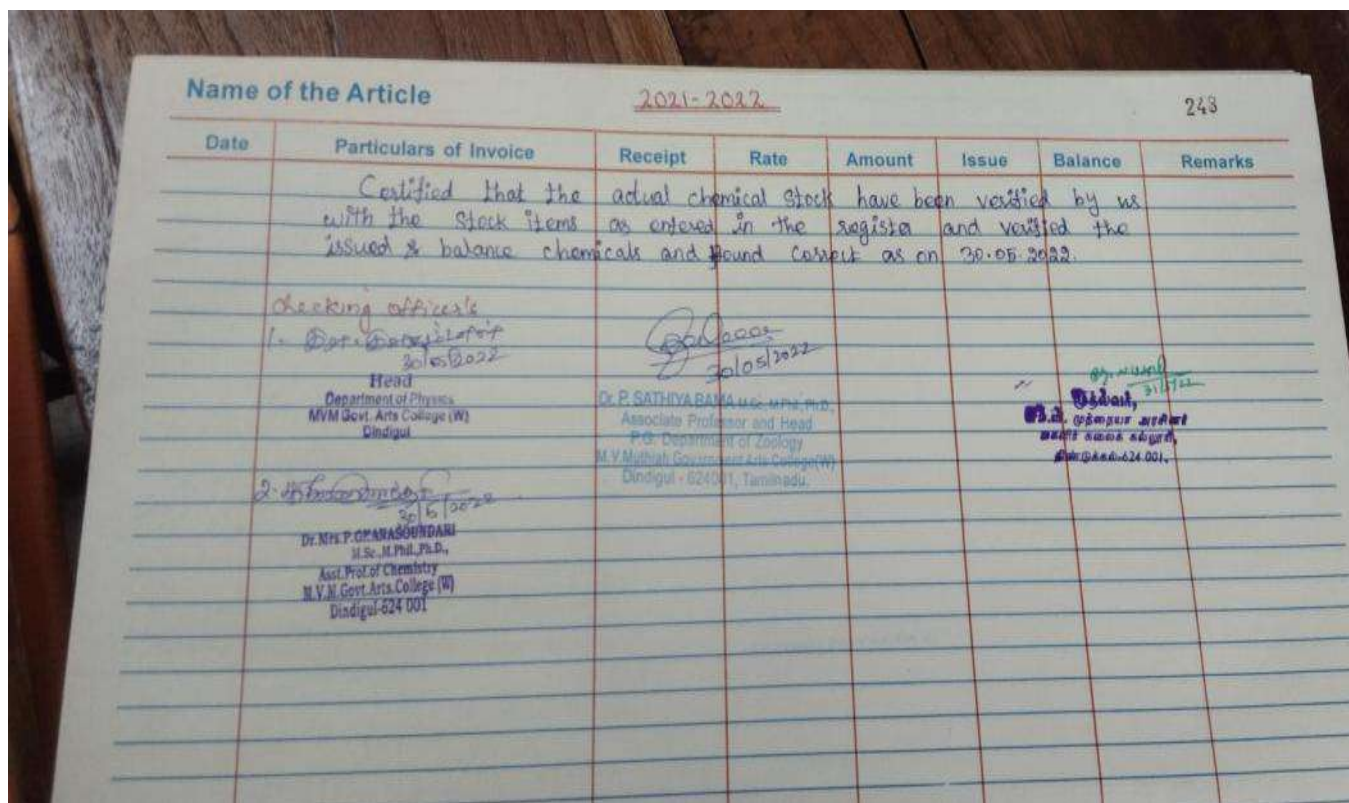 Name of the Article 2021-2022 243
Date Particulars of Invoice Receipt Rate Amount Issue Balance Remarks
Certified that the actual chemical stock have been verified by us
with the stock items as entered in the register and verified the
issued & balance chemicals and found correct as on 30.05.2022.
Checking officer's
1.
30/05/2022
Head
Department of Physics
MVM Govt. Arts College (W)
Dindigul
30/05/2022
Dr. P. SATHIYA RAMA M.Sc., M.Phil., Ph.D.,
Associate Professor and Head
P.G. Department of Zoology
M.V.Muthiah Government Arts College(W)
Dindigul - 624001, Tamilnadu.
முதல்வர்,
முத்தையா அரசினர்
மகளிர் கலைக் கல்லூரி,
திண்டுக்கல்-624 001.
2.
30/5/2022
Dr. Mrs. P. GNANASOUNDARI
M.Sc., M.Phil., Ph.D.,
Asst. Prof. of Chemistry
M.V.M. Govt. Arts. College (W)
Dindigul-624 001